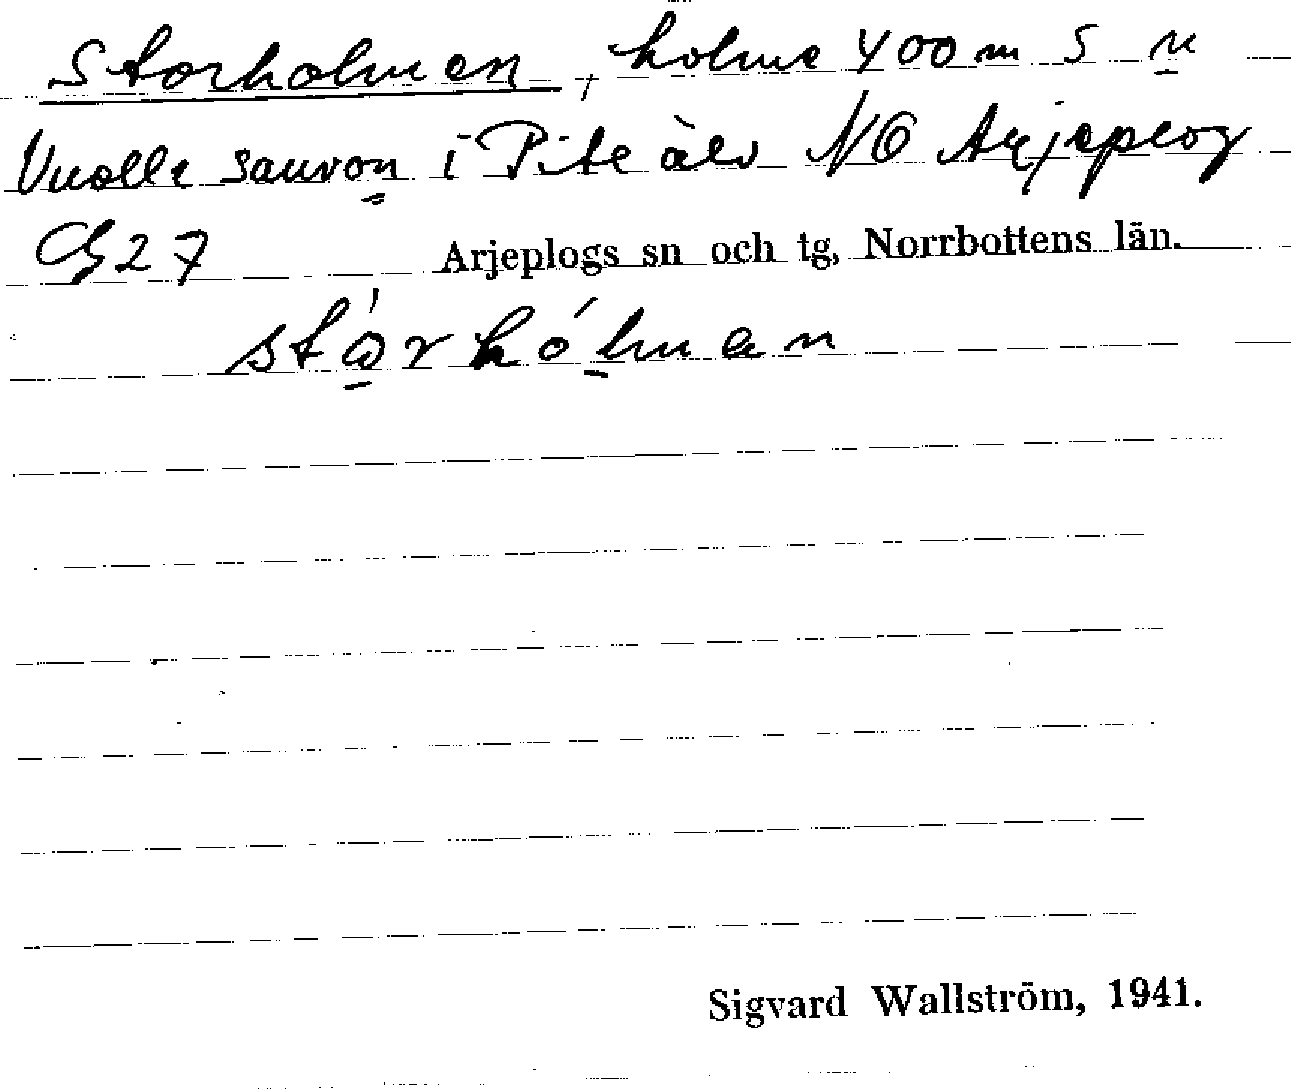 Storholmen, holme 400 m S u
Vuolle sauvon i Pite älv NO Arjeplog
G 27 Arjeplogs sn och tg, Norrbottens län.
stórhólmen
Sigvard Wallström, 1941.